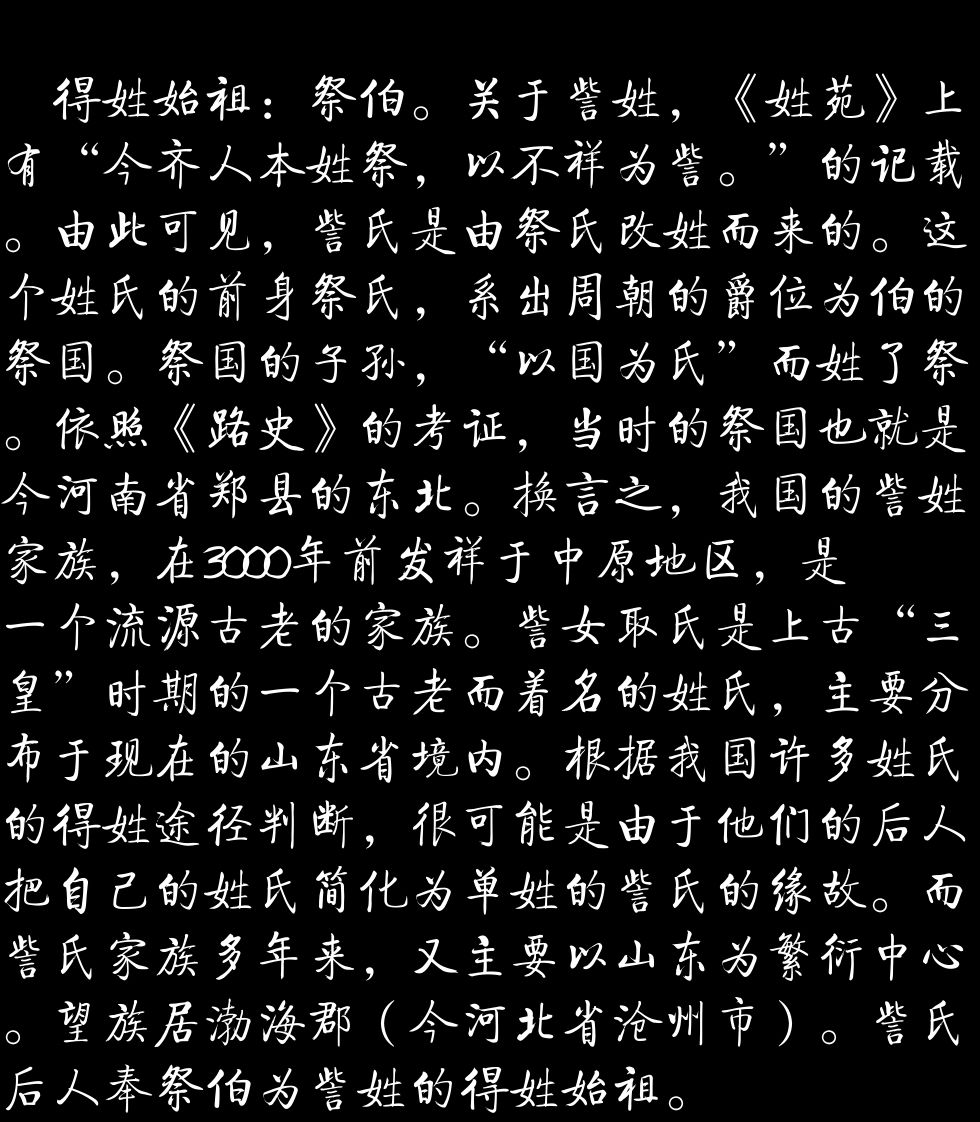 得姓始祖：祭伯。关于訾姓，《姓苑》上
有“今齐人本姓祭，以不祥为訾。”的记载
。由此可见，訾氏是由祭氏改姓而来的。这
个姓氏的前身祭氏，系出周朝的爵位为伯的
祭国。祭国的子孙，“以国为氏”而姓了祭
。依照《路史》的考证，当时的祭国也就是
今河南省郑县的东北。换言之，我国的訾姓
家族，在3000年前发祥于中原地区，是
一个流源古老的家族。訾女取氏是上古“三
皇”时期的一个古老而着名的姓氏，主要分
布于现在的山东省境内。根据我国许多姓氏
的得姓途径判断，很可能是由于他们的后人
把自己的姓氏简化为单姓的訾氏的缘故。而
訾氏家族多年来，又主要以山东为繁衍中心
。望族居渤海郡（今河北省沧州市）。訾氏
后人奉祭伯为訾姓的得姓始祖。